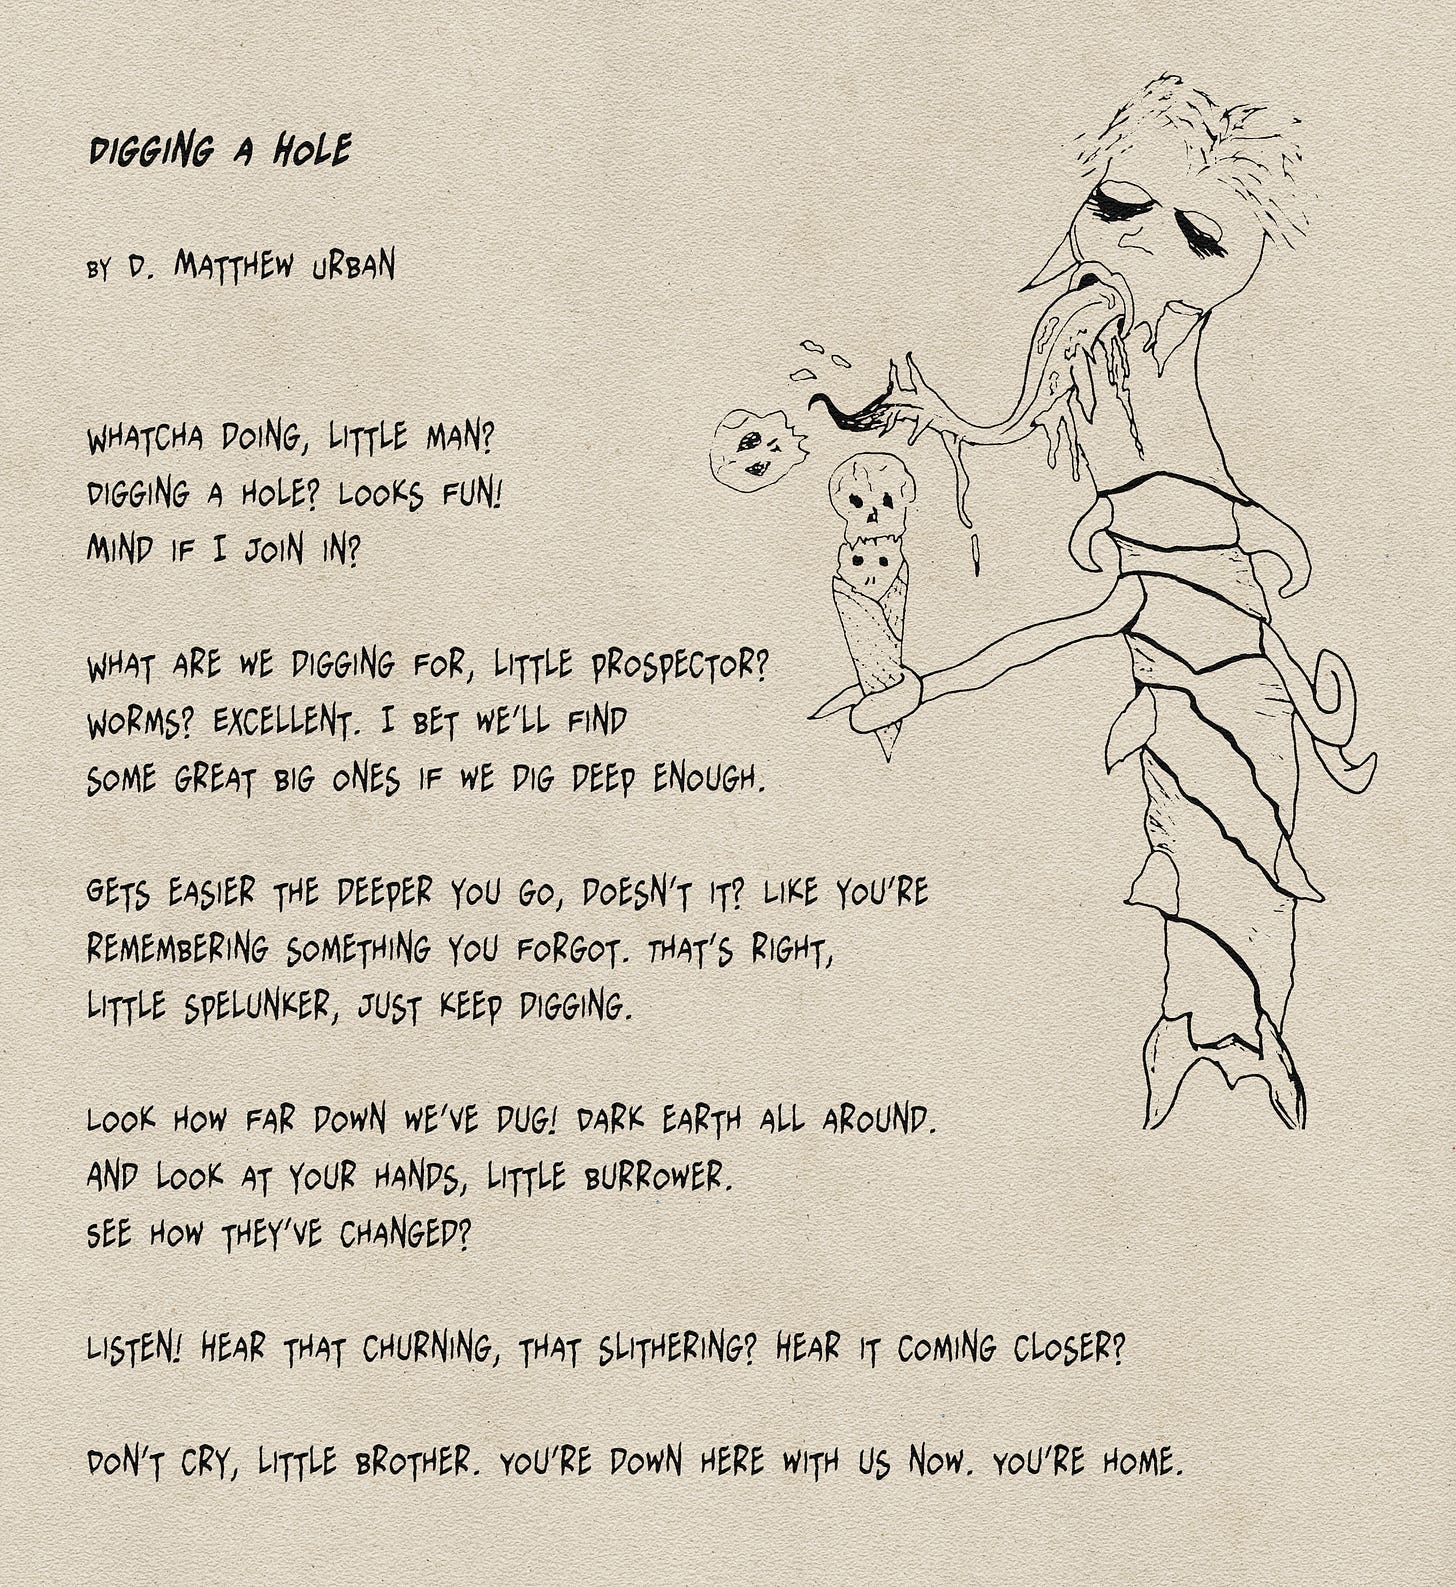 DIGGING A HOLE
BY D. MATTHEW URBAN
WHATCHA DOING, LITTLE MAN?
DIGGING A HOLE? LOOKS FUN!
MIND IF I JOIN IN?
WHAT ARE WE DIGGING FOR, LITTLE PROSPECTOR?
WORMS? EXCELLENT. I BET WE'LL FIND
SOME GREAT BIG ONES IF WE DIG DEEP ENOUGH.
GETS EASIER THE DEEPER YOU GO, DOESN'T IT? LIKE YOU'RE
REMEMBERING SOMETHING YOU FORGOT. THAT'S RIGHT,
LITTLE SPELUNKER, JUST KEEP DIGGING.
LOOK HOW FAR DOWN WE'VE DUG! DARK EARTH ALL AROUND.
AND LOOK AT YOUR HANDS, LITTLE BURROWER.
SEE HOW THEY'VE CHANGED?
LISTEN! HEAR THAT CHURNING, THAT SLITHERING? HEAR IT COMING CLOSER?
DON'T CRY, LITTLE BROTHER. YOU'RE DOWN HERE WITH US NOW. YOU'RE HOME.